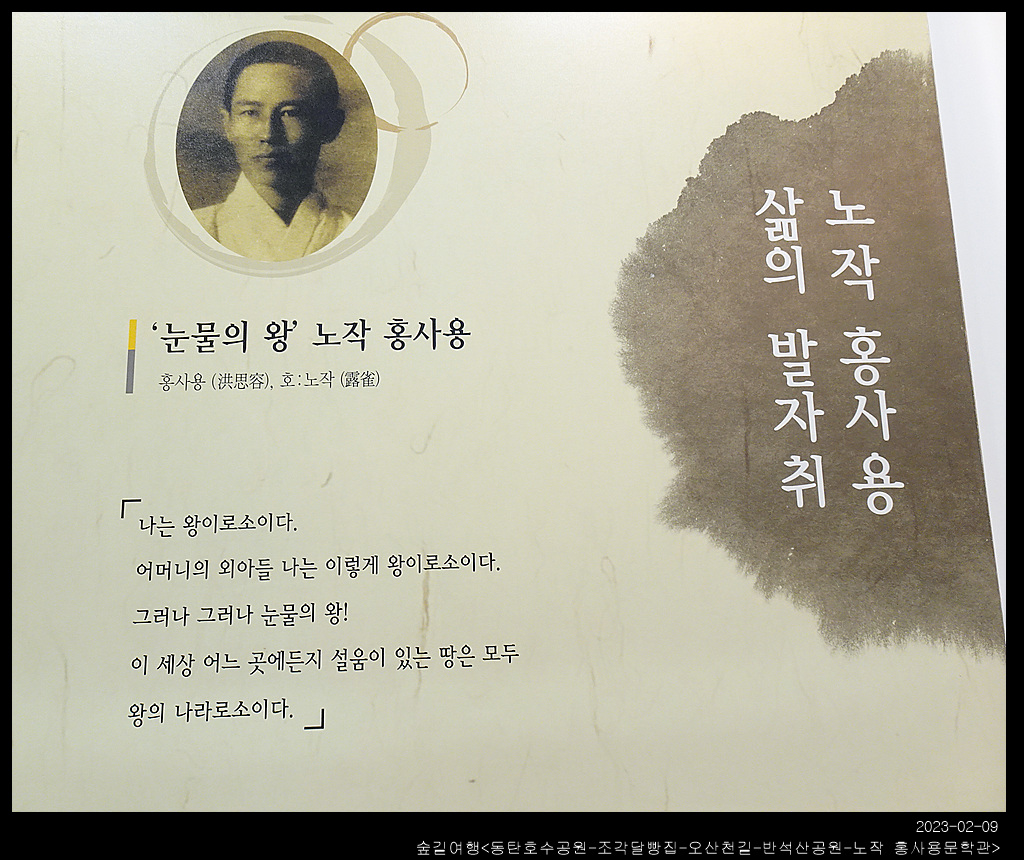 노작 홍사용
삶의 발자취
‘눈물의 왕’ 노작 홍사용
홍사용 (洪思容), 호:노작 (露雀)
「나는 왕이로소이다.
어머니의 외아들 나는 이렇게 왕이로소이다.
그러나 그러나 눈물의 왕!
이 세상 어느 곳에든지 설움이 있는 땅은 모두
왕의 나라로소이다.」
2023-02-09
숲길여행<동탄호수공원-조각달빵집-오산천길-반석산공원-노작 홍사용문학관>